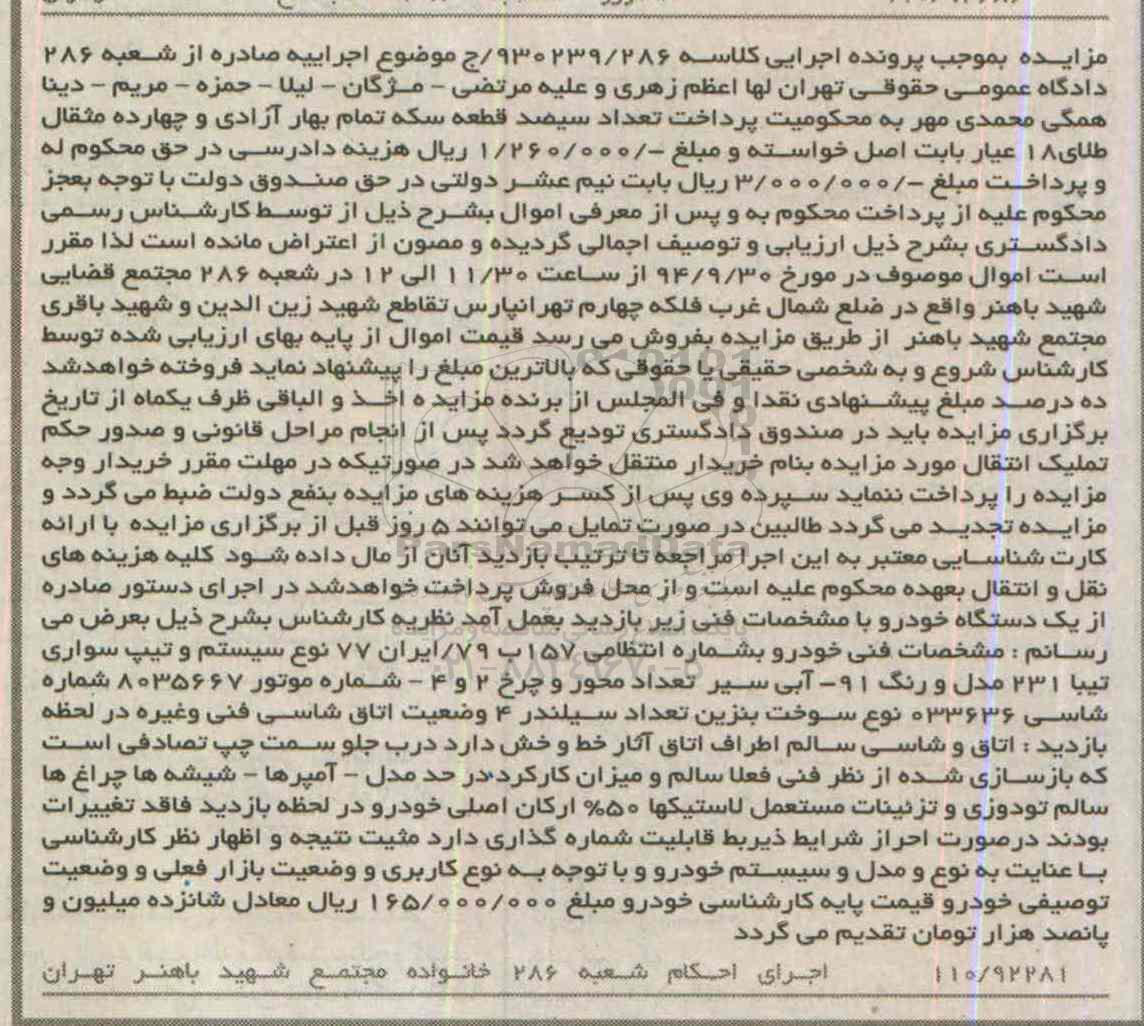 مزایـده بموجب پرونده اجرایی کلاسـه ۹۳۰۲۳۹/۲۸۶/ج موضوع اجراییه صادره از شـعبه ۲۸۶
دادگاه عمومـی حقوقـی تهران لها اعظم زهری و علیه مرتضی - مـژگان - لیلا - حمزه - مریم - دینا
همگی محمدی مهر به محکومیت پرداخت تعداد سیصد قطعه سکه تمام بهار آزادی و چهارده مثقال
طلای۱۸ عیار بابت اصل خواسـته و مبلغ -/۱/۲۶۰/۰۰۰ ریال هزینه دادرسـی در حق محکوم له
و پرداخـت مبلغ -/۳/۰۰۰/۰۰۰ ریال بابت نیم عشـر دولتی در حق صنـدوق دولت با توجه بعجز
محکوم علیه از پرداخت محکوم به و پس از معرفی اموال بشـرح ذیل از توسـط کارشـناس رسـمی
دادگسـتری بشرح ذیل ارزیابی و توصیف اجمالی گردیده و مصون از اعتراض مانده است لذا مقرر
اسـت اموال موصوف در مورخ ۹۴/۹/۳۰ از سـاعت ۱۱/۳۰ الی ۱۲ در شعبه ۲۸۶ مجتمع قضایی
شهید باهنر واقع در ضلع شمال غرب فلکه چهارم تهرانپارس تقاطع شهید زین الدین و شهید باقری
مجتمع شهید باهنر از طریق مزایده بفروش می رسد قیمت اموال از پایه بهای ارزیابی شده توسط
کارشناس شروع و به شخصی حقیقی یا حقوقی که بالاترین مبلغ را پیشنهاد نماید فروخته خواهدشد
ده درصـد مبلغ پیشـنهادی نقدا و فی المجلس از برنده مزاید ه اخـذ و الباقی ظرف یکماه از تاریخ
برگزاری مزایده باید در صندوق دادگستری تودیع گردد پس از انجام مراحل قانونی و صدور حکم
تملیک انتقال مورد مزایده بنام خریدار منتقل خواهد شد در صورتیکه در مهلت مقرر خریدار وجه
مزایده را پرداخت ننماید سـپرده وی پس از کسـر هزینه های مزایده بنفع دولت ضبط می گردد و
مزایـده تجدیـد می گردد طالبین در صورت تمایل می توانند ۵ روز قبل از برگزاری مزایده با ارائه
کارت شناسـایی معتبر به این اجرا مراجعه تا ترتیب بازدید آنان از مال داده شـود کلیه هزینه های
نقل و انتقال بعهده محکوم علیه است و از محل فروش پرداخت خواهدشد در اجرای دستور صادره
از یک دستگاه خودرو با مشخصات فنی زیر بازدید بعمل آمد نظریه کارشناس بشرح ذیل بعرض می
رسـانم : مشخصات فنی خودرو بشماره انتظامی ۱۵۷ب ۷۹/ایران ۷۷ نوع سیستم و تیپ سواری
تیبا ۲۳۱ مدل و رنگ ۹۱- آبی سـیر تعداد محور و چرخ ۲ و ۴ - شـماره موتور ۸۰۳۵۶۶۷ شماره
شاسـی ۰۳۳۶۳۶ نوع سـوخت بنزین تعداد سـیلندر ۴ وضعیت اتاق شاسـی فنی وغیره در لحظه
بازدید : اتاق و شاسـی سـالم اطراف اتاق آثار خط و خش دارد درب جلو سـمت چپ تصادفی اسـت
که بازسـازی شـده از نظر فنی فعلا سالم و میزان کارکرد در حد مدل - آمپرها - شیشه ها چراغ ها
سالم تودوزی و تزئینات مستعمل لاستیکها ۵۰% ارکان اصلی خودرو در لحظه بازدید فاقد تغییرات
بودند درصورت احراز شرایط ذیربط قابلیت شماره گذاری دارد مثبت نتیجه و اظهار نظر کارشناسی
بـا عنایت به نوع و مدل و سیسـتم خودرو و با توجه بـه نوع کاربری و وضعیت بازار فعلی و وضعیت
توصیفی خودرو قیمت پایه کارشناسی خودرو مبلغ ۱۶۵/۰۰۰/۰۰۰ ریال معادل شانزده میلیون و
پانصد هزار تومان تقدیم می گردد
۱۱۰/۹۲۲۸۱ اجـرای احـکام شـعبه ۲۸۶ خانـواده مجتمـع شـهید باهنـر تهـران